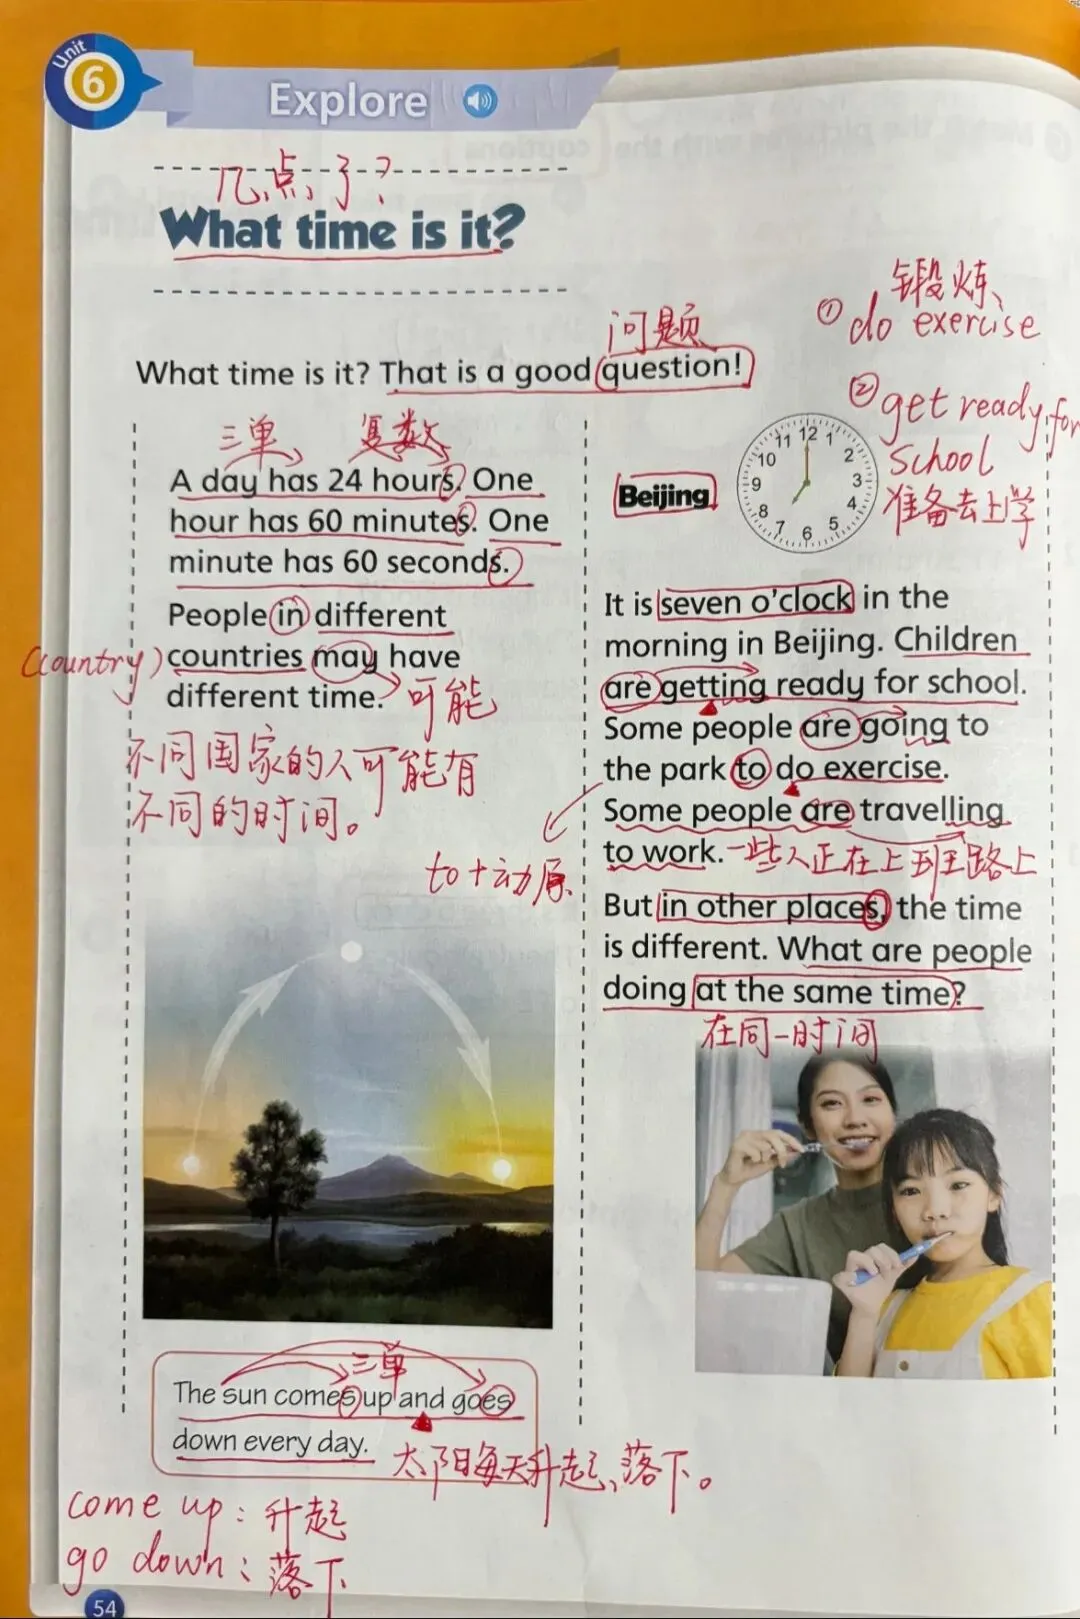 Unit
6
Explore
几点了?
What time is it?
问题
What time is it? That is a good question!
锻炼
① do exercise
② get ready for
school
准备去上学
三单 复数
A day has 24 hours. One
hour has 60 minutes. One
minute has 60 seconds.
People in different
(country) countries may have
different time. 可能
不同国家的人可能有
不同的时间。
to+动原
三单
The sun comes up and goes
down every day.
太阳每天升起,落下。
come up: 升起
go down: 落下
Beijing
11 12 1
10 2
9 3
8 4
7 6 5
It is seven o'clock in the
morning in Beijing. Children
are getting ready for school.
Some people are going to
the park to do exercise.
Some people are travelling
to work. 一些人正在上班路上
But in other places, the time
is different. What are people
doing at the same time?
在同一时间
54